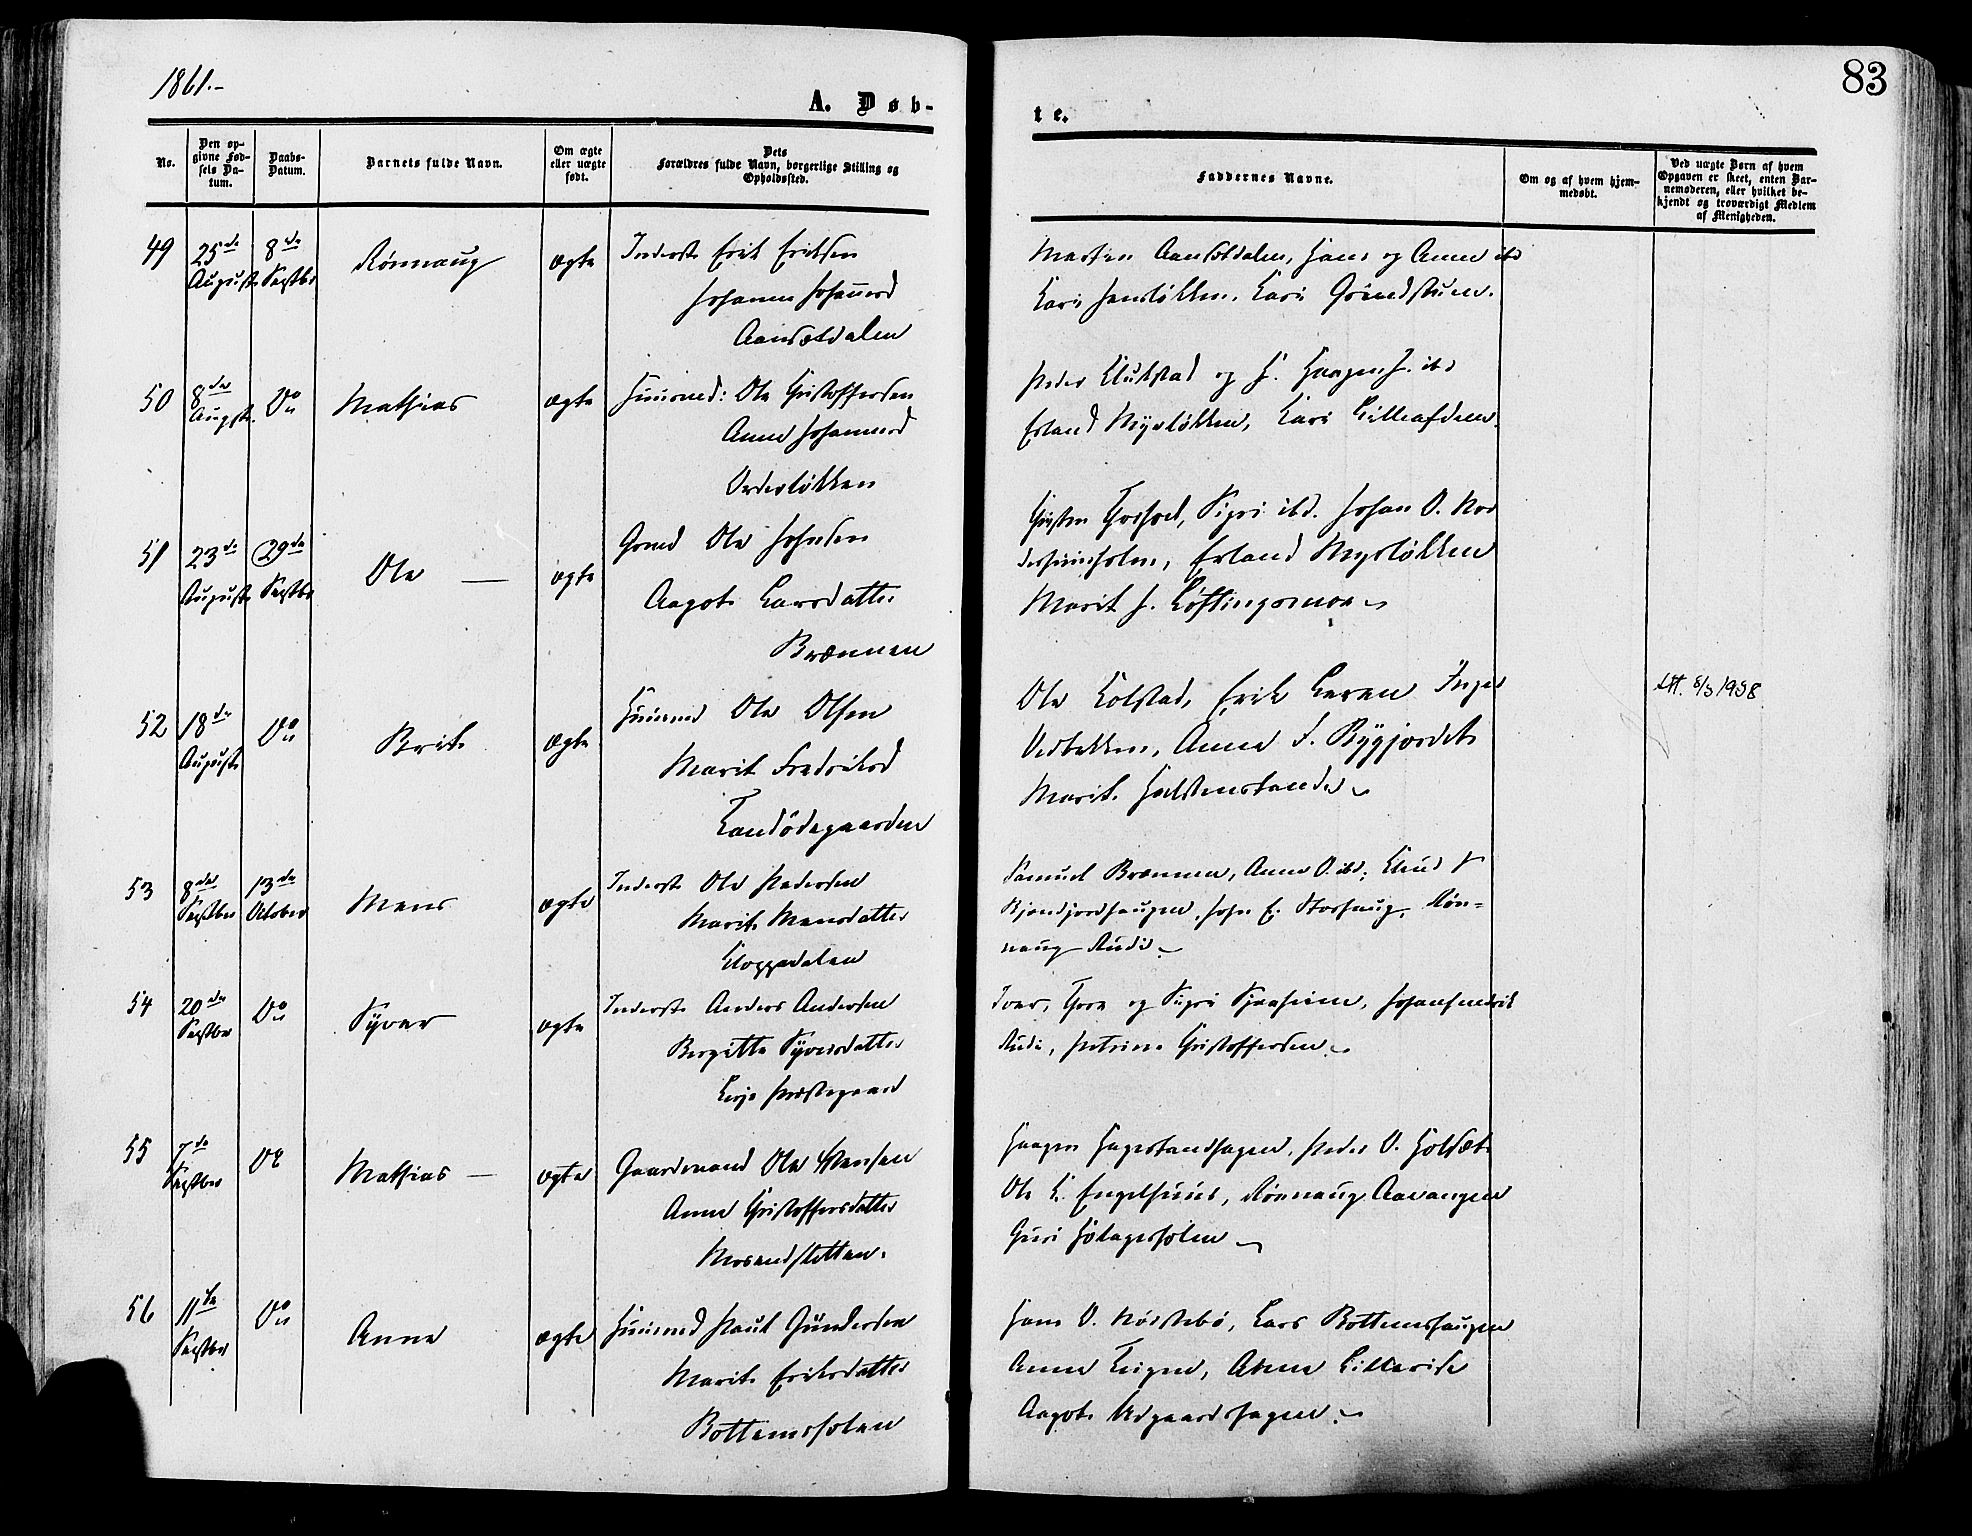 1861.-
A. Døb-
te.
83
No.
Den op-
givne Fød-
sels Da-
tum.
Daabs-
Datum.
Barnets fulde Navn.
Om ægte
eller uægte
født.
Dets
Forældres fulde Navn, borgerlige Stilling og
Opholdssted.
Faddernes Navne.
Om og af hvem hjem-
medøbt.
Ved uægte Børn af hvem
Opgaven er skeet, enten Bar-
nemoderen, eller hvilket be-
kjendt og troværdigt Medlem
af Menigheden.
49
25de
August
8de
Septbr
Rønnaug
ægte
Inderst Erik Eriksen
Johanne Johannesd
Aansætdalen
Morten Aansætdalen, Hans og Anne ibd
Kari Jensløkken, Kari Grindstuen.
50
8de
Augst.
Do
Mathias
ægte
Huusmd: Ole Christoffersen
Anne Johannesd
Vedesløkken
Peder Klukstad og
Erland Myrløkken, Kari
51
23de
August
29de
Septbr
Ole
ægte
Grmd Ole Johnsen
Aagot Larsdatter
Brænnen
Sigri ibd. Johan O. Nor
Erland Myrløkken
Marit J. Løftingsmoe
52
18de
August
Do
Brit
ægte
Huusmd Ole Olsen
Marit Fredriksd
Landødegaarden
Ole Kolstad, Erik
Anne F. Bygjordet
Marit
Att. 8/3 1938
53
8de
Septbr
13de
October
Mens
ægte
Inderst Ole Pedersen
Marit Mensdatter
Kloppedalen
Samuel Brænnen, Anne O. ibd; Knud
John E. Storhaug, Røn-
naug Rudi
54
20de
Septbr
Do
Syver
ægte
Inderst Anders Andersen
Birgitte Syversdatter
Lesje Præstegaard
Iver, Thora og Sigri Kjæsheim, Johanfredrik
Rudi, Petrine Christoffersen
55
7de
Septber
Do
Mathias
ægte
Gaardmand Ole Hansen
Anne Christoffersdatter
Mosendsletten.
Haagen Hagestandhagen, Peder O. Holsæt
Ole K. Engelshuus, Rønnaug Aavangen
Guri
56
11te
Septber
Do
Anne
ægte
Huusmd Paul Gundersen
Marit Eriksdatter
Bottemsholen
Hans O. Nørstebø, Lars Bottemshaugen
Anne
Aagot Udgaardshagen